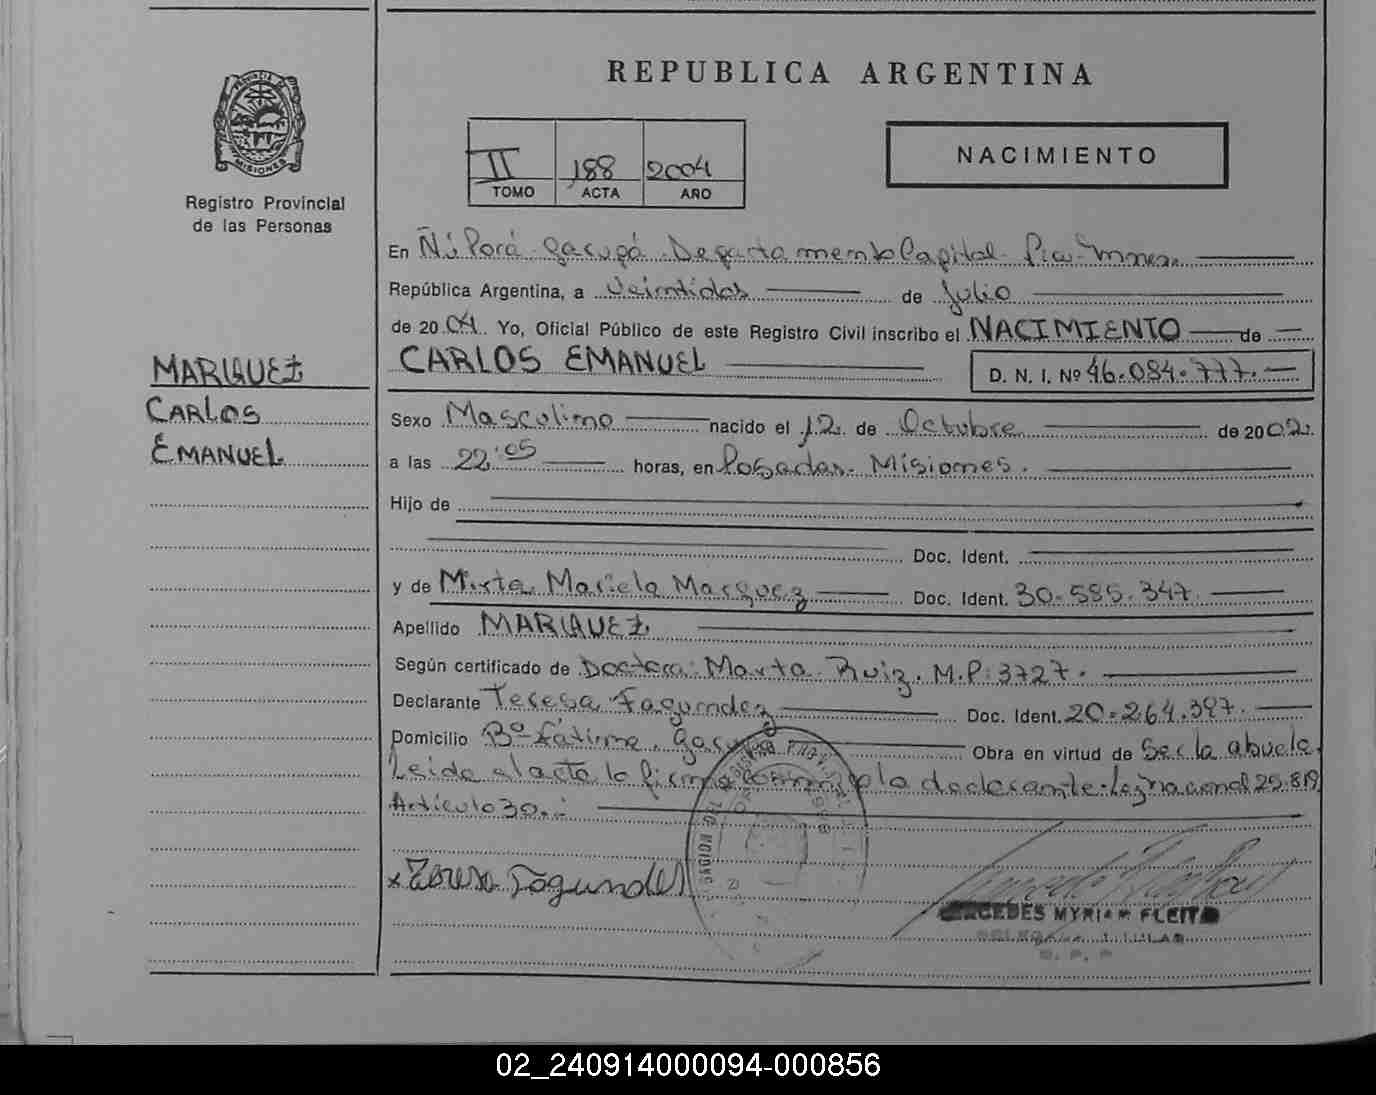 REPUBLICA ARGENTINA
PROVINCIA DE MISIONES
Registro Provincial
de las Personas
II 188 2004
TOMO ACTA AÑO
NACIMIENTO
En Ñu Porá - Garupá. Departamento Capital - Pcia - Mnes.
República Argentina, a Veintidos de Julio
de 2004. Yo, Oficial Público de este Registro Civil inscribo el NACIMIENTO de
CARLOS EMANUEL D. N. I. Nº 46.084.777.
MARQUEZ
CARLOS
EMANUEL
Sexo Masculino nacido el 12 de Octubre de 2002.
a las 22:05 horas, en Posadas - Misiones.
Hijo de
Doc. Ident.
y de Mirta Mariela Marquez Doc. Ident. 30.585.347.
Apellido MARQUEZ
Según certificado de Doctora: Marta Ruiz. M.P: 3727.
Declarante Teresa Fagundez Doc. Ident. 20.264.397.
Domicilio Bº Fátima. Obra en virtud de Ser la abuela.
Leida el acta la firma conmigo la declarante. Ley nacional 25.819
Articulo 30.-
x Teresa Fagundez
MERCEDES MYRIAM FLEITA
02_240914000094-000856